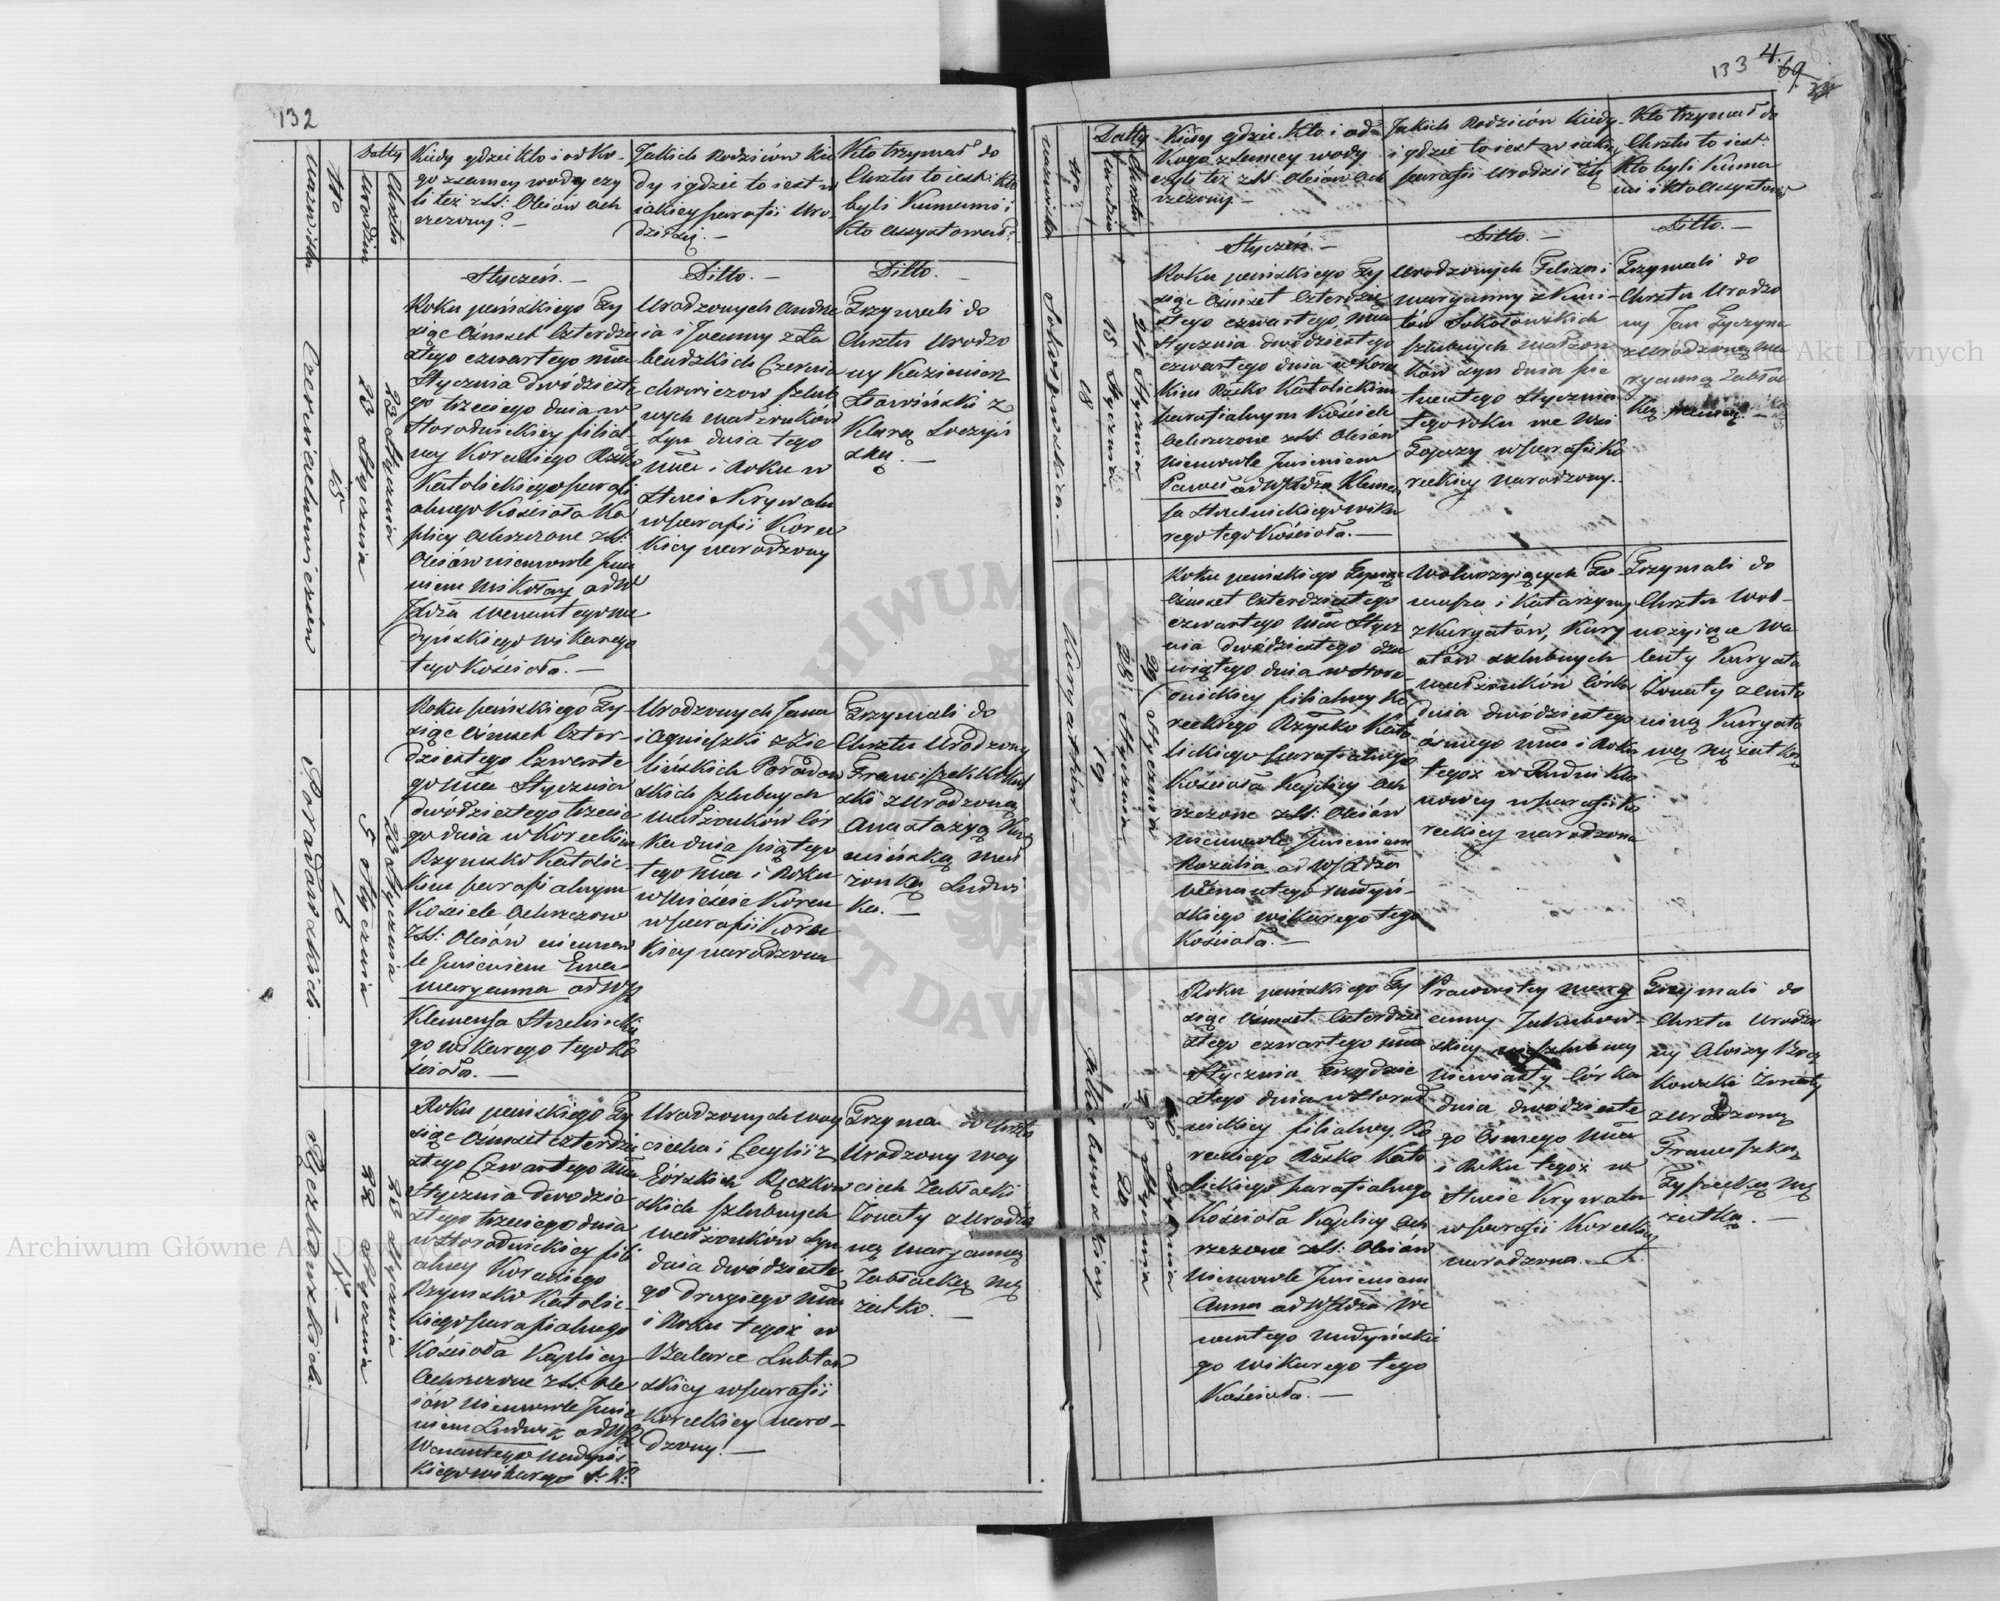 132
Nazwiska
Nro
Datty
Urodzin
Chrztu
Kiedy gdzie Kto i od Ko-
go z samey wody czy
li też z SS: Oleiow och
rzczony? -
Jakich Rodziców Kie
dy i gdzie to iest w
iakiey parafii Uro-
dził się. -
Kto trzymał do
Chrztu to iest: Kto
byli Kumami i
Kto assystował?
Styczeń. -
Ditto. -
Ditto. -
Czerniachowiczów
15
23 Stycznia
23 Stycznia
Roku pańskiego Ty
siąc Osmset Czterdzie
stego czwartego Mca
Stycznia dwódzieste
go trzeciego dnia w
Storożnickiey filial
ney Koreckiego Rzko
Katolickiego parafi
alnego Kościoła Ka
plicy ochrzczone z SS:
Oleiów niemowle Imie
niem Mikołay od W
Jdźa Wenantego Mu
dyńskiego Wikarego
tego Kościoła. -
Urodzonych Andrze
ia i Joanny z Ła
będzkich Czernia
chowiczow szlub
nych małżonków
Syn dnia tego
Mca i Roku w
Starei Krywalu
w parafii Kore
ckiey narodzony
Trzymali do
Chrztu Urodzo
ny Kazimierz
Sławiński z
Klarą Łoczyń
ską. -
Poradowskich. -
16
5 Stycznia
23 Stycznia
Roku pańskiego Ty-
siąc Osmset Czter-
dziestego Czwarte
go Mca Stycznia
dwódziestego trzecie
go dnia w Koreckim
Rzymsko Katolic-
kim parafialnym
Kościele Ochrzczone
z SS: Oleiów niemow
le Imieniem Ewa
Maryanna od WJ
Klemensa Strzelnickie
go Wikarego tego Ko
ścioła. -
Urodzonych Jana
i Agnieszki z Zie
lińskich Poradow
skich szlubnych
małżonków Cór
ka dnia piątego
tego Mca i Roku
w Mieście Korcu
w parafii Kore
ckiey narodzona
Trzymali do
Chrztu Urodzony
Franciszek
ski z Urodzoną
Anastazyą
mińską Mał
żonką Ludwi
ka. -
Rączkowskich.
17. -
22 Stycznia
23 Stycznia
Roku pańskiego Ty
siąc Osmset czterdzie
stego Czwartego Mca
Stycznia dwodzie
stego trzeciego dnia
w Storożnickiey fili
alney Koreckiego
Rzymsko Katolic-
kiego parafialnego
Kościoła Kaplicy
Ochrzczone z SS: Ole
iów Niemowle Imie
niem Ludwik od WJ
Wenantego Mudyńs
kiego Wikarego t: K:
Urodzonych Woy
ciecha i Cecylii z
Górskich Rączkow
skich szlubnych
małżonków Syn
dnia dwódzieste
go drugiego Mca
i Roku tegoż w
Lubtow
skiey w parafii
Koreckiey naro-
dzony. -
Trzymali do Chrztu
Urodzony Woy
ciech Zabłocki
Żonaty z Urodzo
ną Maryanną
Zabłocką Mę
żatką. -
133
4
69
Nazwiska
Nro
Datty
Urodzin
Chrztu
Kiedy gdzie Kto i od
Kogo z samey wody
czyli też z SS: Oleiow Och
rzczony -
Jakich Rodziców Kiedy
i gdzie to iest w iakiey
parafii Urodził się
Kto trzymał do
Chrztu to iest:
Kto byli Kuma
mi i Kto assystował
Styczeń. -
Ditto. -
Ditto. -
Sokołowskich. -
18
15 Stycznia
24 Stycznia
Roku pańskiego Ty
siąc Osmset Czterdzie
stego czwartego, Mca
Stycznia dwódziestego
czwartego dnia w Korec
kim Rzko Katolickim
parafialnym Kościele
Ochrzczone z SS: Oleiów
Niemowle Imieniem
Paweł od WJdźa Klemen
sa Strzelnickiego Wika
rego tego Kościoła. -
Urodzonych Felixa i
Maryanny z Kmi-
tów Sokołowskich
szlubnych małżon
ków Syn dnia pię
tnastego Stycznia
tego Roku we Wsi
w parafii Ko
reckiey narodzony.
Trzymali do
Chrztu Urodzo
ny Jan Tyczyna
z Urodzoną Ma
ryanną Zabłoc
ką
Kuryatów
19
28 Stycznia
29 Stycznia
Roku pańskiego Tysiąc
Osmset Czterdziestego
czwartego Mca Stycz
nia dwódziestego dzie
wiątego dnia w Storo
żnickiey filialney Ko
reckiego Rzymsko Kato
lickiego parafialnego
Kościoła Kaplicy Och
rzczone z SS: Oleiów
Niemowle Imieniem
Rozalia od WJdźa
Wenantego Mudyń-
skiego Wikarego tego
Kościoła. -
Wolnożyiących To-
masza i Katarzyny
z Kuryatów, Kury
atów szlubnych
małżonków Córka
dnia dwódziestego
ósmego Mca i Roku
tegoż w Rudni Kle
nowey w parafii Ko
reckiey narodzona
Trzymali do
Chrztu Wol-
nożyiące Wa
lenty Kuryata
Żonaty z Anto
niną Kuryato
wą Mężatką
Jakubowskiey. -
20
28 Stycznia
30 Stycznia
Roku pańskiego Ty
siąc Osmset Czterdzie
stego czwartego Mca
Stycznia Trzydzie
stego dnia w Storoż
nickiey filialney Ko
reckiego Rzsko Kato
lickiego parafialnego
Kościoła Kaplicy Och
rzczone z SS: Oleiów
Niemowle Imieniem
Anna od WJdźa We
nantego Mudyńskie
go Wikarego tego
Kościoła. -
Prawowitey Mary
anny Jakubow-
skiey nieszlubney
Niewiasty Córka
dnia dwódzieste
go Osmego Mca
i Roku tegoż w
Starei Krywalu
w parafii Koreckiey
narodzona. -
Trzymali do
Chrztu Urodzo
ny Aloizy Rocz
kowski Żonaty
z Urodzoną
Franciszką
Mę
żatką. -
Archiwum Główne Akt Dawnych
Archiwum Główne Akt Dawnych